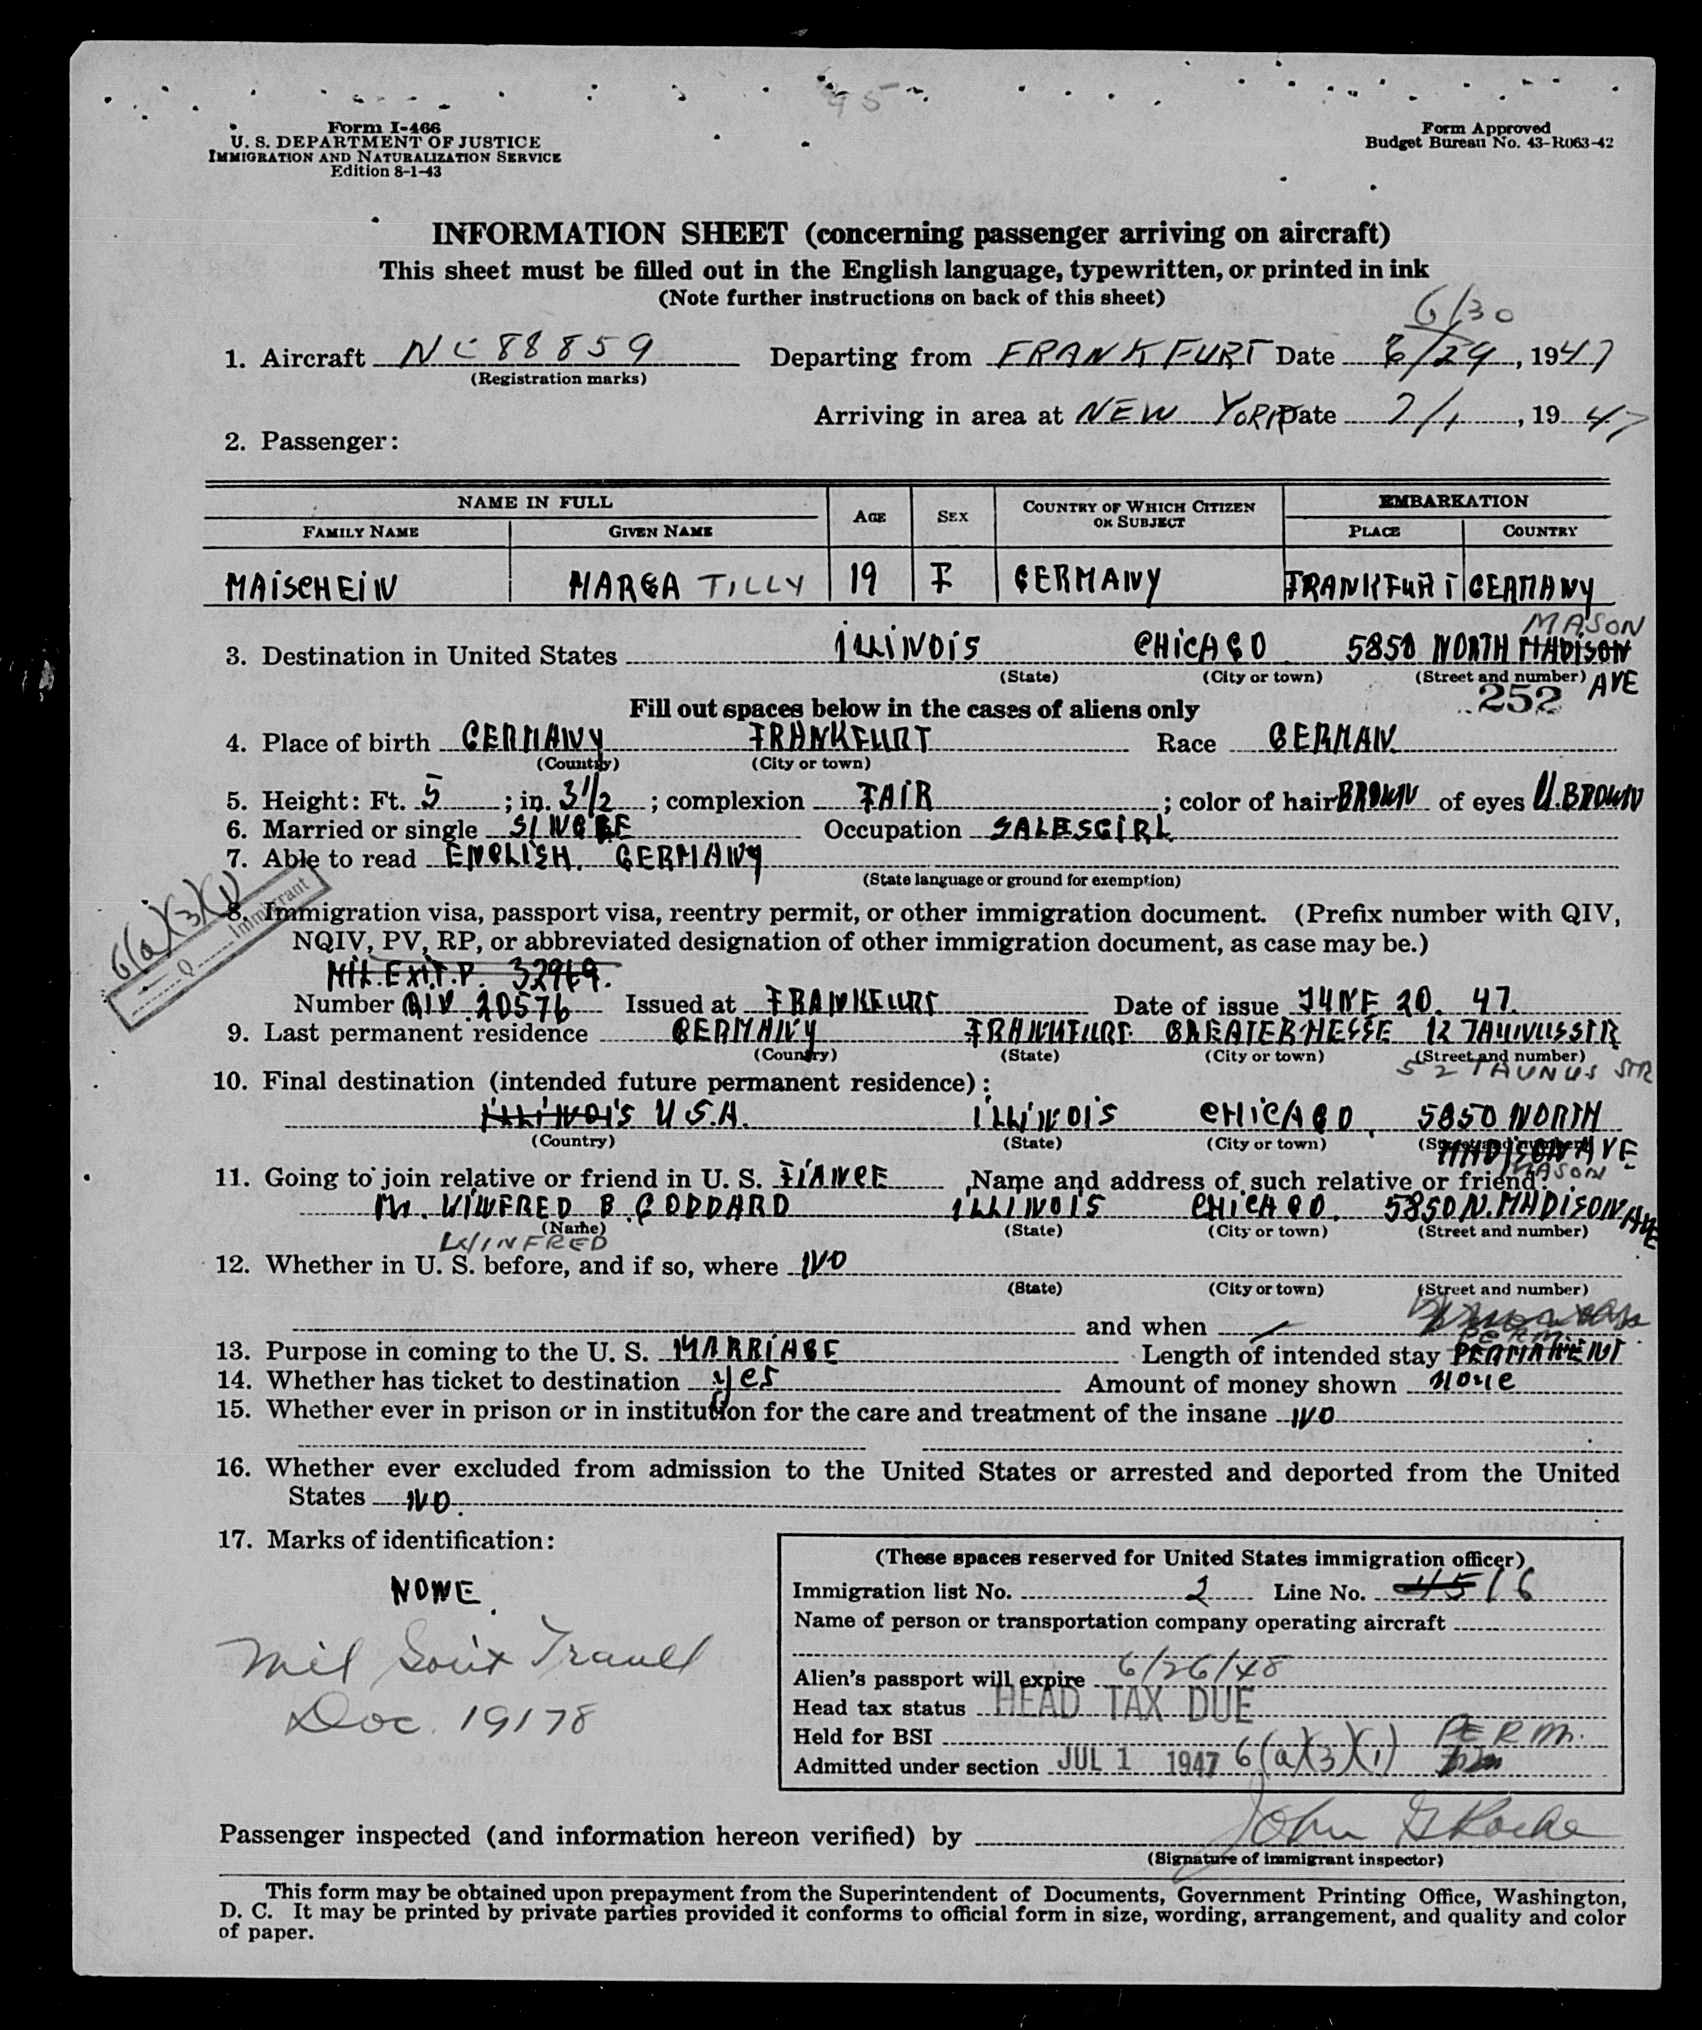 95
Form I-466
U. S. DEPARTMENT OF JUSTICE
IMMIGRATION AND NATURALIZATION SERVICE
Edition 8-1-43
Form Approved
Budget Bureau No. 43-R063-42
INFORMATION SHEET (concerning passenger arriving on aircraft)
This sheet must be filled out in the English language, typewritten, or printed in ink
(Note further instructions on back of this sheet)
6/30
1. Aircraft NC 88859 Departing from FRANKFURT Date 6/29, 1947
(Registration marks)
Arriving in area at NEW YORK Date 7/1, 1947
2. Passenger:
NAME IN FULL AGE SEX COUNTRY OF WHICH CITIZEN OR SUBJECT EMBARKATION
FAMILY NAME GIVEN NAME PLACE COUNTRY
MAISCHEIN MARGA TILLY 19 F GERMANY FRANKFURT GERMANY
MASON
3. Destination in United States ILLINOIS CHICAGO 5850 NORTH MADISON
(State) (City or town) (Street and number) AVE
252
Fill out spaces below in the cases of aliens only
4. Place of birth GERMANY FRANKFURT Race GERMAN
(Country) (City or town)
5. Height: Ft. 5; in. 3 1/2; complexion FAIR; color of hair BROWN of eyes U.BROWN
6. Married or single SINGLE Occupation SALESGIRL
7. Able to read ENGLISH. GERMANY
(State language or ground for exemption)
6(a)(3)(1)
Q Immigrant
8. Immigration visa, passport visa, reentry permit, or other immigration document. (Prefix number with QIV,
NQIV, PV, RP, or abbreviated designation of other immigration document, as case may be.)
MIL.EXIT.P. 32969.
Number QIV 20576 Issued at FRANKFURT Date of issue JUNE 20. 47.
9. Last permanent residence GERMANY FRANKFURT GREATER HESSE 12 TAUNUSSTR
(Country) (State) (City or town) (Street and number)
52 TAUNUS STR
10. Final destination (intended future permanent residence):
ILLINOIS U.S.A. ILLINOIS CHICAGO, 5850 NORTH
(Country) (State) (City or town) (Street and number)
MADISON AVE
MASON
11. Going to join relative or friend in U. S. FIANCE Name and address of such relative or friend:
Mr. WINFRED B. GODDARD ILLINOIS CHICAGO. 5850 N. MADISON AVE
(Name) (State) (City or town) (Street and number)
WINFRED
12. Whether in U. S. before, and if so, where NO
(State) (City or town) (Street and number)
and when
PERM.
13. Purpose in coming to the U. S. MARRIAGE Length of intended stay PERMANENT
14. Whether has ticket to destination yes Amount of money shown none
15. Whether ever in prison or in institution for the care and treatment of the insane NO
16. Whether ever excluded from admission to the United States or arrested and deported from the United
States NO.
17. Marks of identification:
NONE.
Mil Exit Travel
Doc. 19178
(These spaces reserved for United States immigration officer)
Immigration list No. 2 Line No. 45 16
Name of person or transportation company operating aircraft
Alien's passport will expire 6/26/48
Head tax status HEAD TAX DUE
Held for BSI PERM.
Admitted under section JUL 1 1947 6(a)(3)(1)
Passenger inspected (and information hereon verified) by John G Roche
(Signature of immigrant inspector)
This form may be obtained upon prepayment from the Superintendent of Documents, Government Printing Office, Washington,
D. C. It may be printed by private parties provided it conforms to official form in size, wording, arrangement, and quality and color
of paper.